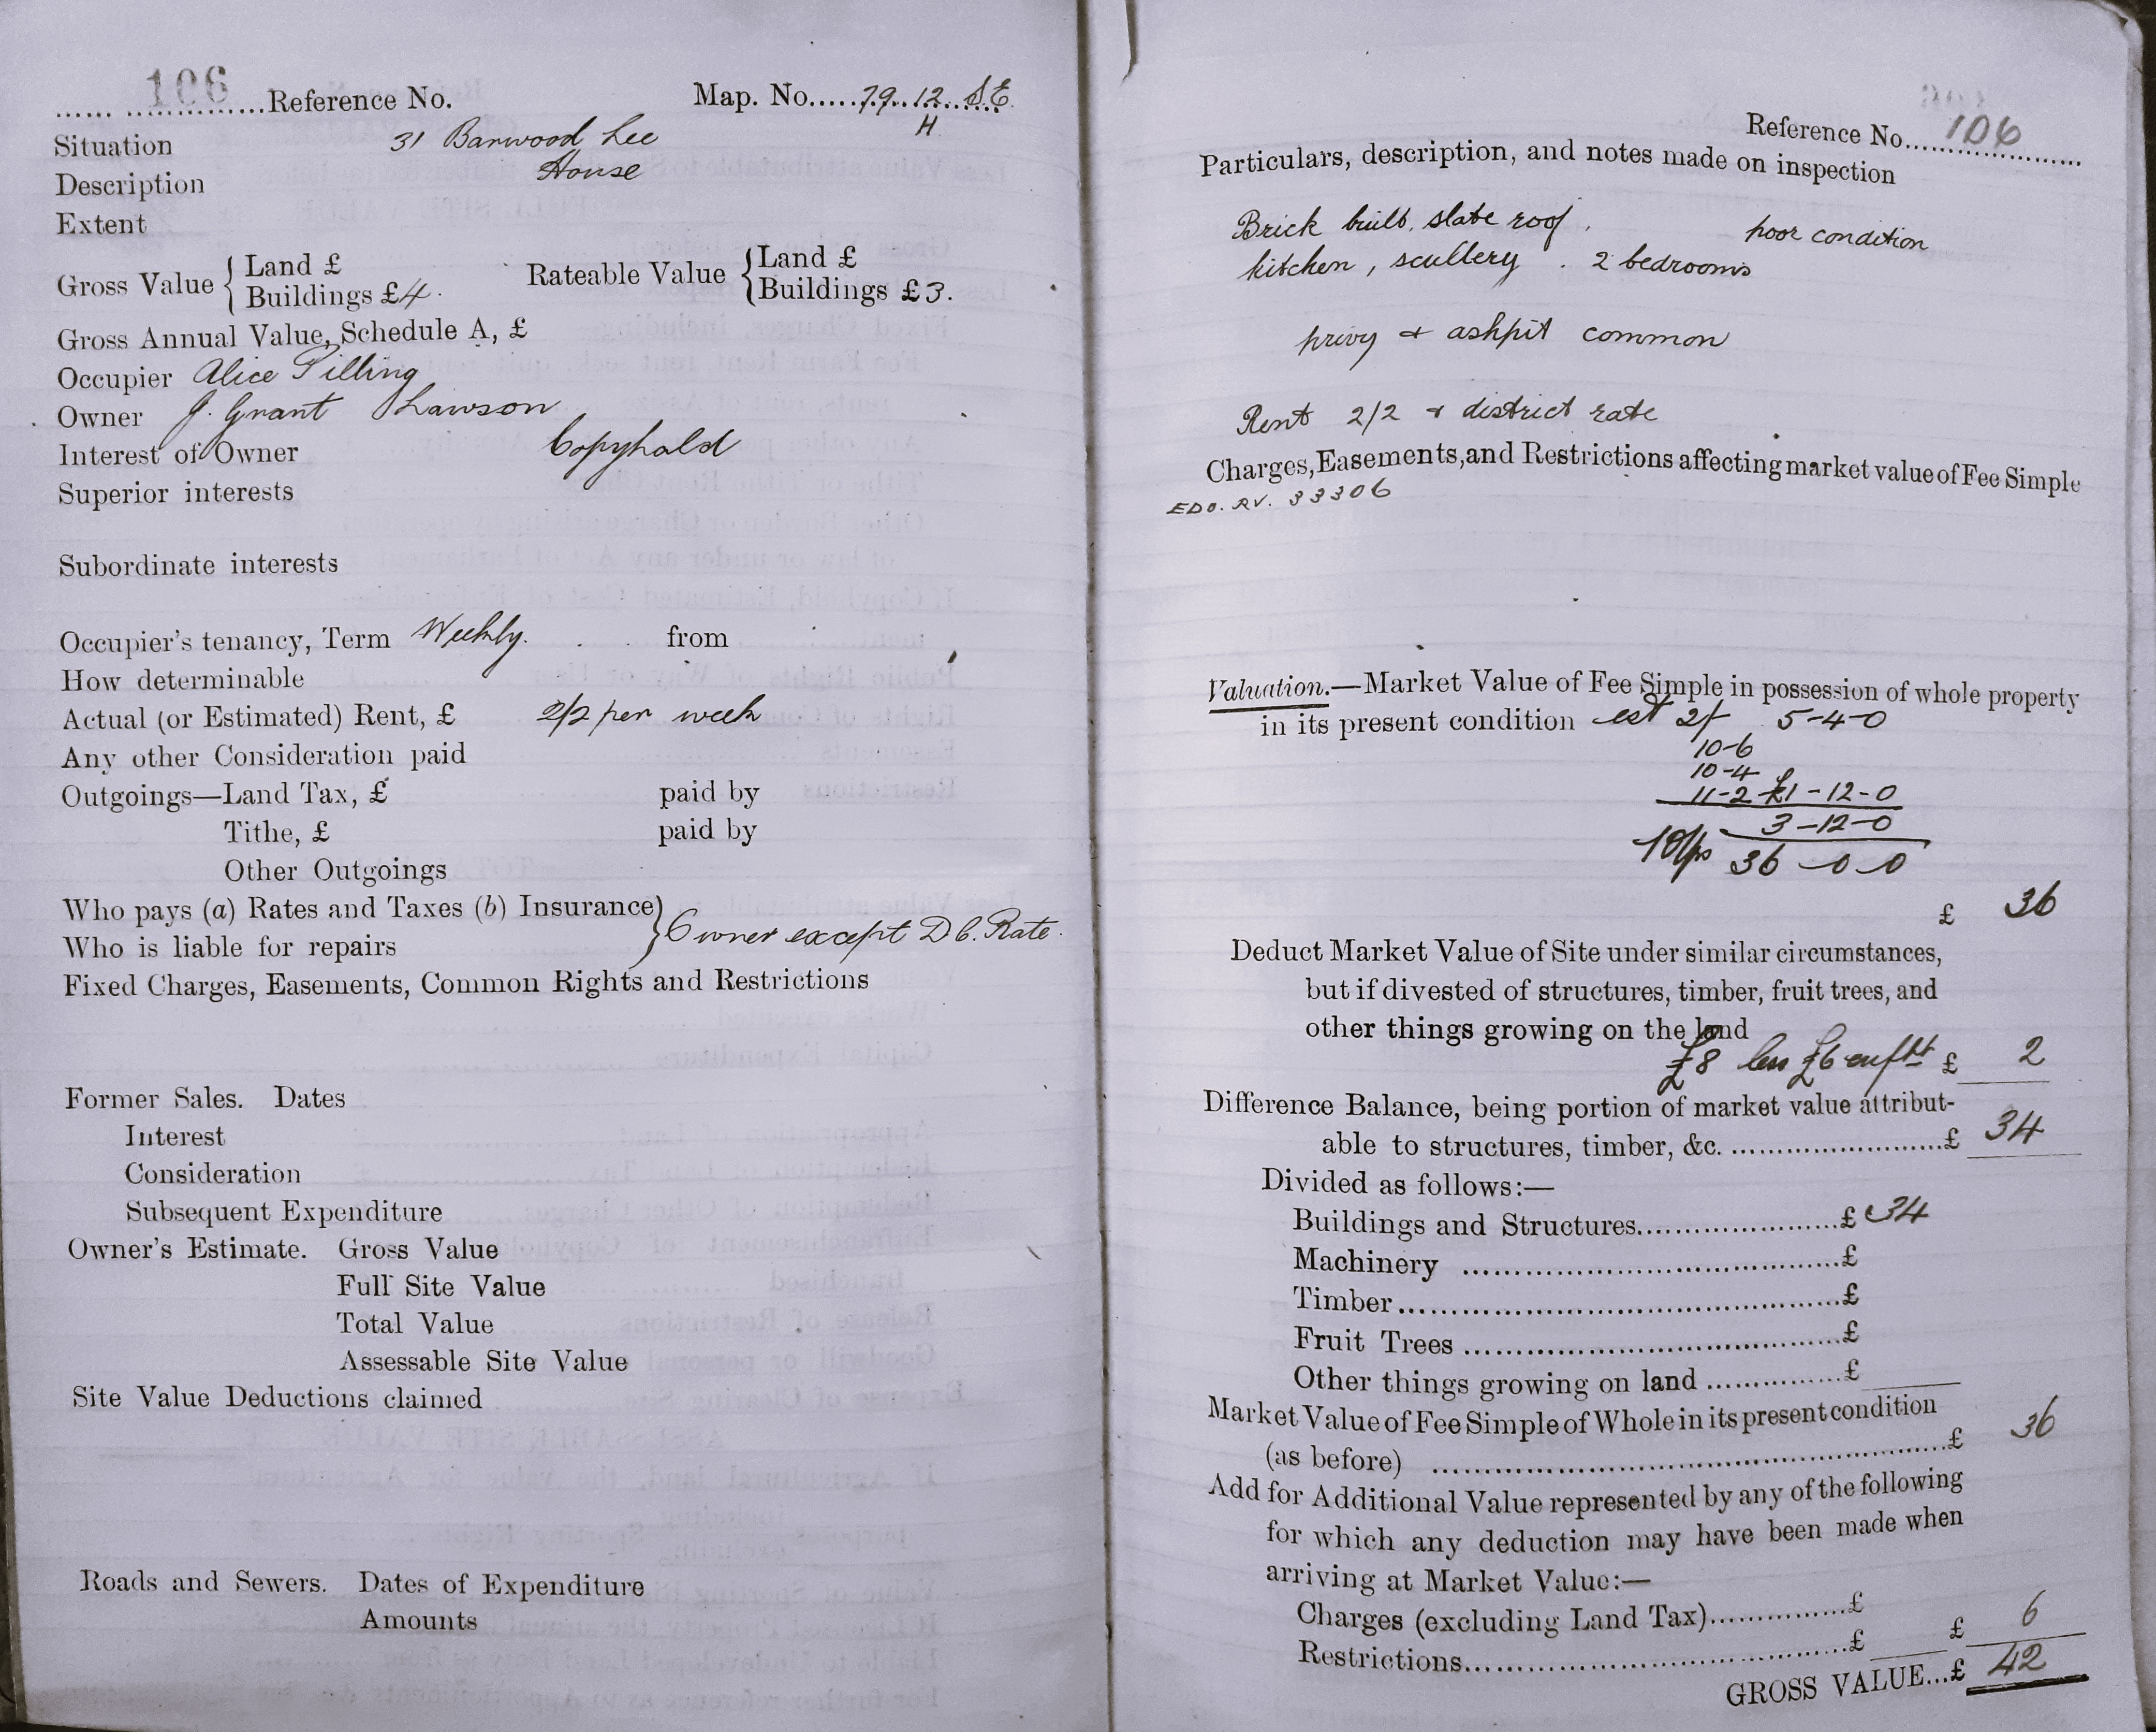 106 Reference No. Map. No. 79.12 S.E.
H
Situation 31 Barwood Lee
Description House
Extent
Gross Value { Land £ Rateable Value { Land £
Buildings £4. Buildings £3.
Gross Annual Value, Schedule A, £
Occupier Alice Pilling
Owner J. Grant Lawson
Interest of Owner Copyhold
Superior interests
Subordinate interests
Occupier's tenancy, Term Weekly. from
How determinable
Actual (or Estimated) Rent, £ 2/2 per week
Any other Consideration paid
Outgoings—Land Tax, £ paid by
Tithe, £ paid by
Other Outgoings
Who pays (a) Rates and Taxes (b) Insurance }
Who is liable for repairs } Owner except D C. Rate.
Fixed Charges, Easements, Common Rights and Restrictions
Former Sales. Dates
Interest
Consideration
Subsequent Expenditure
Owner's Estimate. Gross Value
Full Site Value
Total Value
Assessable Site Value
Site Value Deductions claimed
Roads and Sewers. Dates of Expenditure
Amounts
Reference No. 106
Particulars, description, and notes made on inspection
Brick built, slate roof, poor condition
kitchen, scullery. 2 bedrooms
privy & ashpit common
Rent 2/2 & district rate
Charges, Easements, and Restrictions affecting market value of Fee Simple
EDO. RV. 33306
Valuation.—Market Value of Fee Simple in possession of whole property
in its present condition est 2/- 5-4-0
10-6
10-4
11-2 £1-12-0
3-12-0
10yp 36-0-0
£ 36
Deduct Market Value of Site under similar circumstances,
but if divested of structures, timber, fruit trees, and
other things growing on the land
£8 less £6 enfht £ 2
Difference Balance, being portion of market value attribut-
able to structures, timber, &c. £ 34
Divided as follows:—
Buildings and Structures £34
Machinery £
Timber £
Fruit Trees £
Other things growing on land £
Market Value of Fee Simple of Whole in its present condition
(as before) £ 36
Add for Additional Value represented by any of the following
for which any deduction may have been made when
arriving at Market Value:—
Charges (excluding Land Tax) £
Restrictions £ £ 6
GROSS VALUE...£ 42